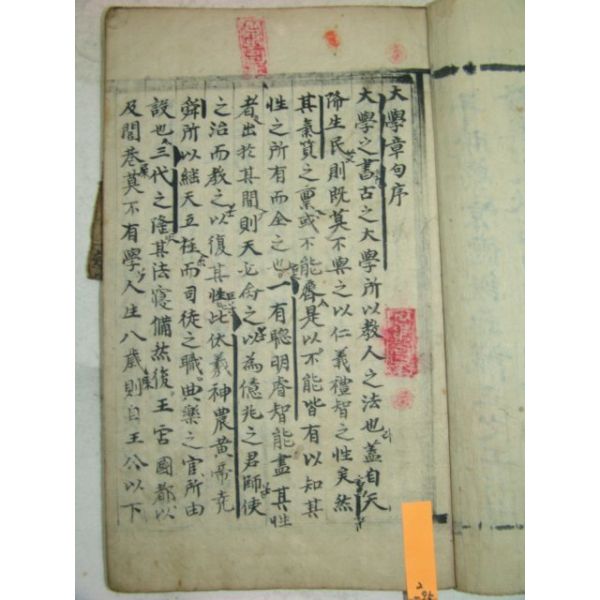 大學章句序
大學之書古之大學所以教人之法也盖自天
降生民則既莫不與之以仁義禮智之性矣然
其氣質之禀或不能齊是以不能皆有以知其
性之所有而全之也一有聰明睿智能盡其性
者出於其間則天必命之以為億兆之君師使
之治而教之以復其性此伏羲神農黃帝堯
舜所以繼天立極而司徒之職典樂之官所由
設也三代之隆其法寖備然後王宮國都以
及閭巷莫不有學人生八歲則自王公以下